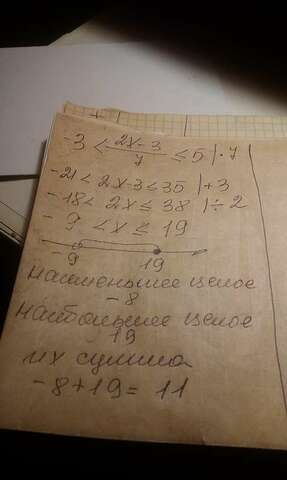 -3 < (2x-3)/7 ≤ 5 | · 7
-21 < 2x-3 ≤ 35 | +3
-18 < 2x ≤ 38 | ÷ 2
-9 < x ≤ 19
-9 19
наименьшее целое
-8
наибольшее целое
19
их сумма
-8+19 = 11